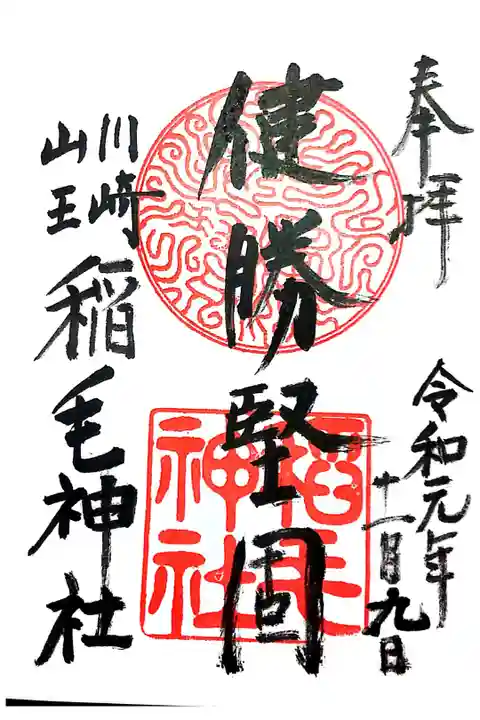 奉拝
令和元年
十一月九日
健勝堅固
川崎
山王
稲毛神社
稲毛
神社